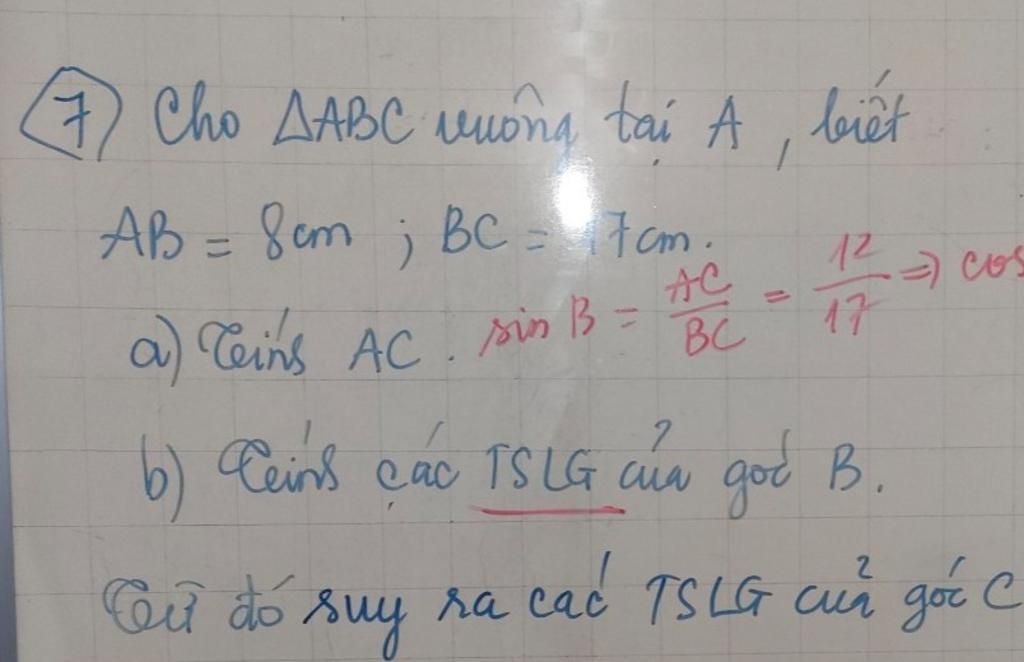 7 Cho ΔABC vuông tại A, biết
AB = 8cm ; BC = 17cm.
a) Tính AC. sin B = AC/BC = 12/17 => cos
b) Tính các TSLG của góc B.
Từ đó suy ra các TSLG của góc C